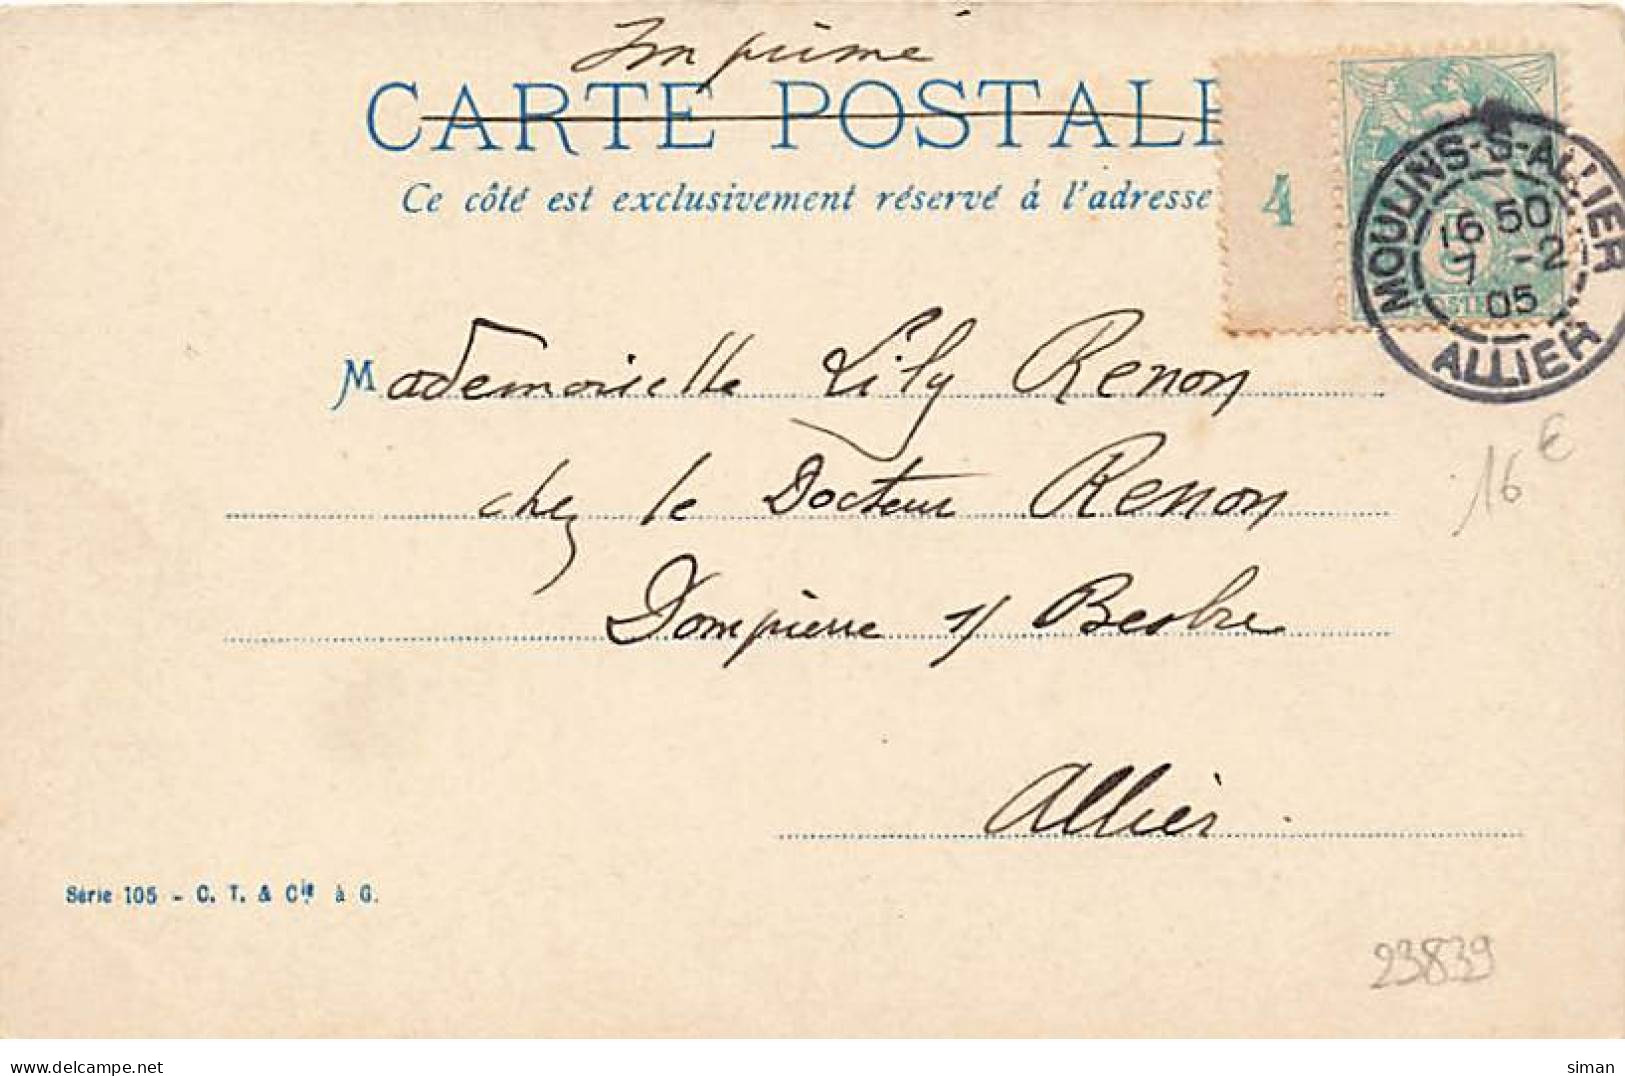 Imprimé
CARTE POSTALE
Ce côté est exclusivement réservé à l'adresse
4
5
MOULINS-S-ALLIER
16 50
7 -2
05
ALLIER
Mademoiselle Lily Renon
chez le Docteur Renon
Dompierre s/ Besbre
Allier.
16 €
Série 105 - C. T. & Cie à G.
23839
delcampe.net
siman